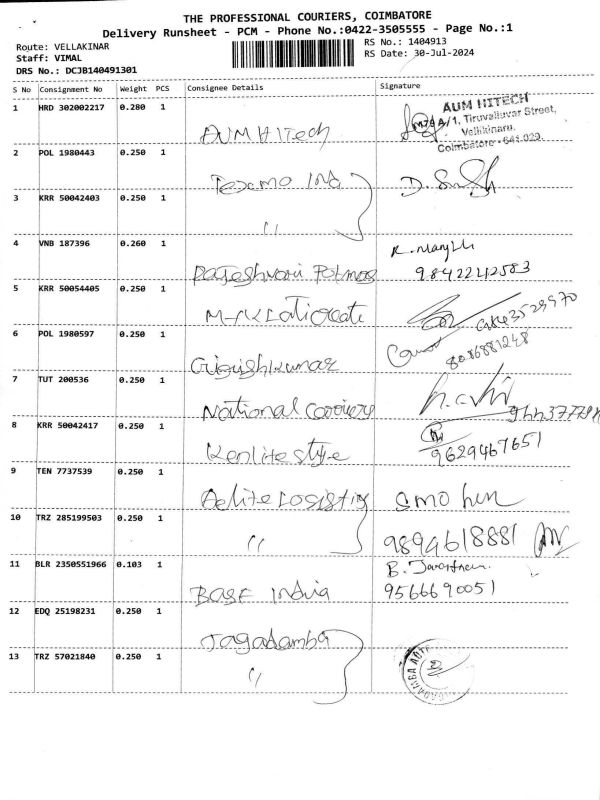 THE PROFESSIONAL COURIERS, COIMBATORE
Delivery Runsheet - PCM - Phone No.:0422-3505555 - Page No.:1
Route: VELLAKINAR
RS No.: 1404913
Staff: VIMAL
RS Date: 30-Jul-2024
DRS No.: DCJB140491301
S No Consignment No Weight PCS Consignee Details Signature
1 HRD 302002217 0.280 1 AUM HITech
AUM HITECH
A/1, Tiruvalluvar Street,
Vellikinaru,
Coimbatore - 641 029.
2 POL 1980443 0.250 1 Texmo Ind
3 KRR 50042403 0.250 1 "
4 VNB 187396 0.260 1 Rajeshvari
9842242583
5 KRR 50054405 0.250 1
6 POL 1980597 0.250 1 Girishkumar
8086881248
7 TUT 200536 0.250 1 National Carriers
8 KRR 50042417 0.250 1 Kenlite style
9629467651
9 TEN 7737539 0.250 1 Aelite Logistiq
10 TRZ 285199503 0.250 1 "
9894618881
11 BLR 2350551966 0.103 1 BASF India
9566690051
12 EDQ 25198231 0.250 1 Jagadamba
13 TRZ 57021840 0.250 1 "